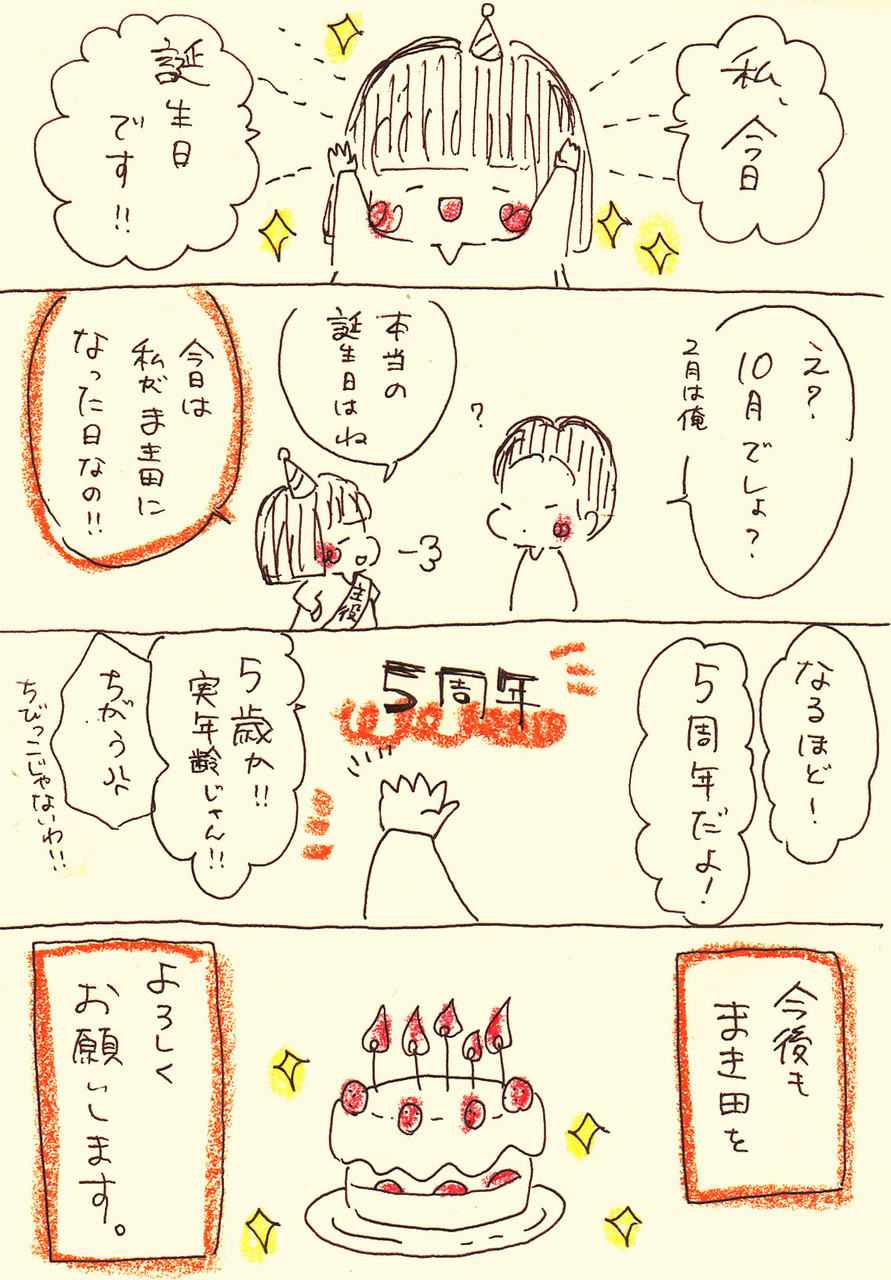 私、
今日
誕
生日
です!!
え?
10月でしょ?
2月は俺
?
本当の
誕生日はね
主役
今日は
私がま㐂田に
なった日なの!!
なるほど!
5周年だよ!
5周年
5歳か!!
実年齢じゃん!!
ちがう
ちびっこじゃないわ!!
今後も
まき田を
よろしく
お願いします。